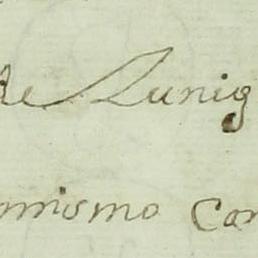 de Zunig
mismo Con